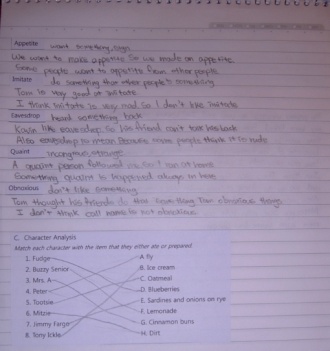 Appetite want something, sign
We want to make appetite So we made an appetite.
Some people want to appetite from other people
Imitate do something that other people's
Tom is very good at imitate
I think imitate is very mad So I don't like imitate
Eavesdrop heard something back
Kevin like eavesdrop So his friend can't talk
Also eavesdrop is mean Because some people think it so rude
Quaint incongruous, strange
A quaint person followed me So I ran at home
Something quaint is happened always in here
Obnoxious don't like something
Tom thought his friends
I don't think call name is not obnoxious
C. Character Analysis
Match each character with the item that they either ate or prepared.
1. Fudge
2. Buzzy Senior
3. Mrs. A
4. Peter
5. Tootsie
6. Mitzie
7. Jimmy Fargo
8. Tony Ickle
A. fly
B. Ice cream
C. Oatmeal
D. Blueberries
E. Sardines and onions on rye
F. Lemonade
G. Cinnamon buns
H. Dirt